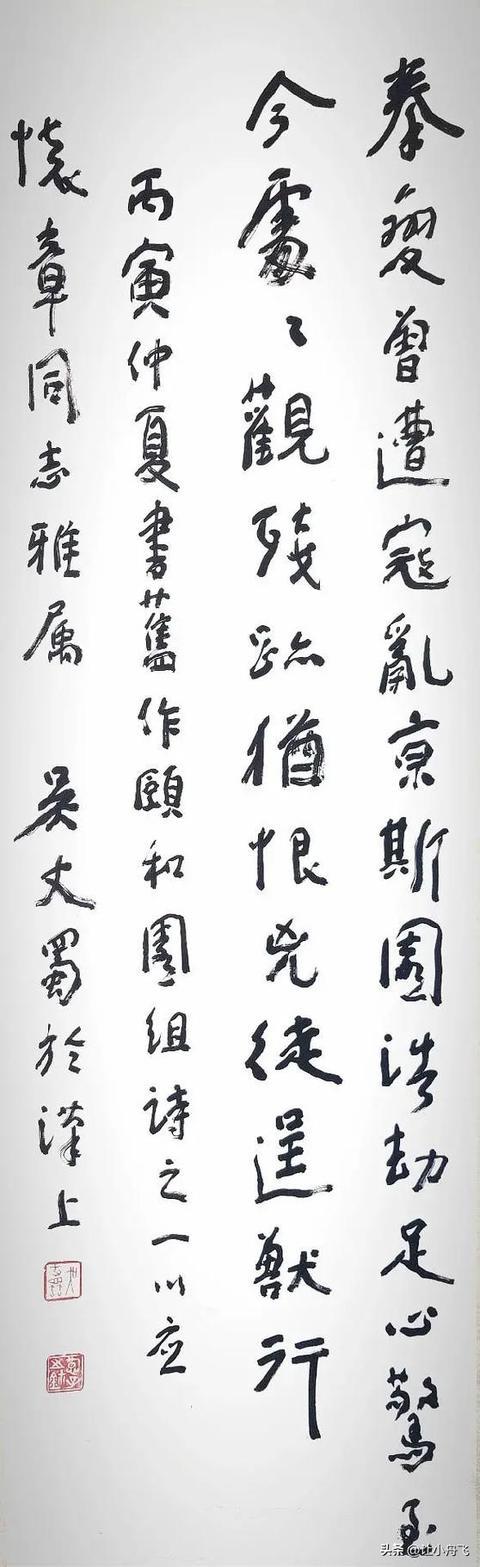 拳變曾遭寇亂京斯園浩劫足心驚至
今處〻觀殘跡猶恨兇徒逞獸行
丙寅仲夏書舊作頤和園組詩之一以应
懷章同志雅属 吴丈蜀於漢上
头条@壮小舟飞